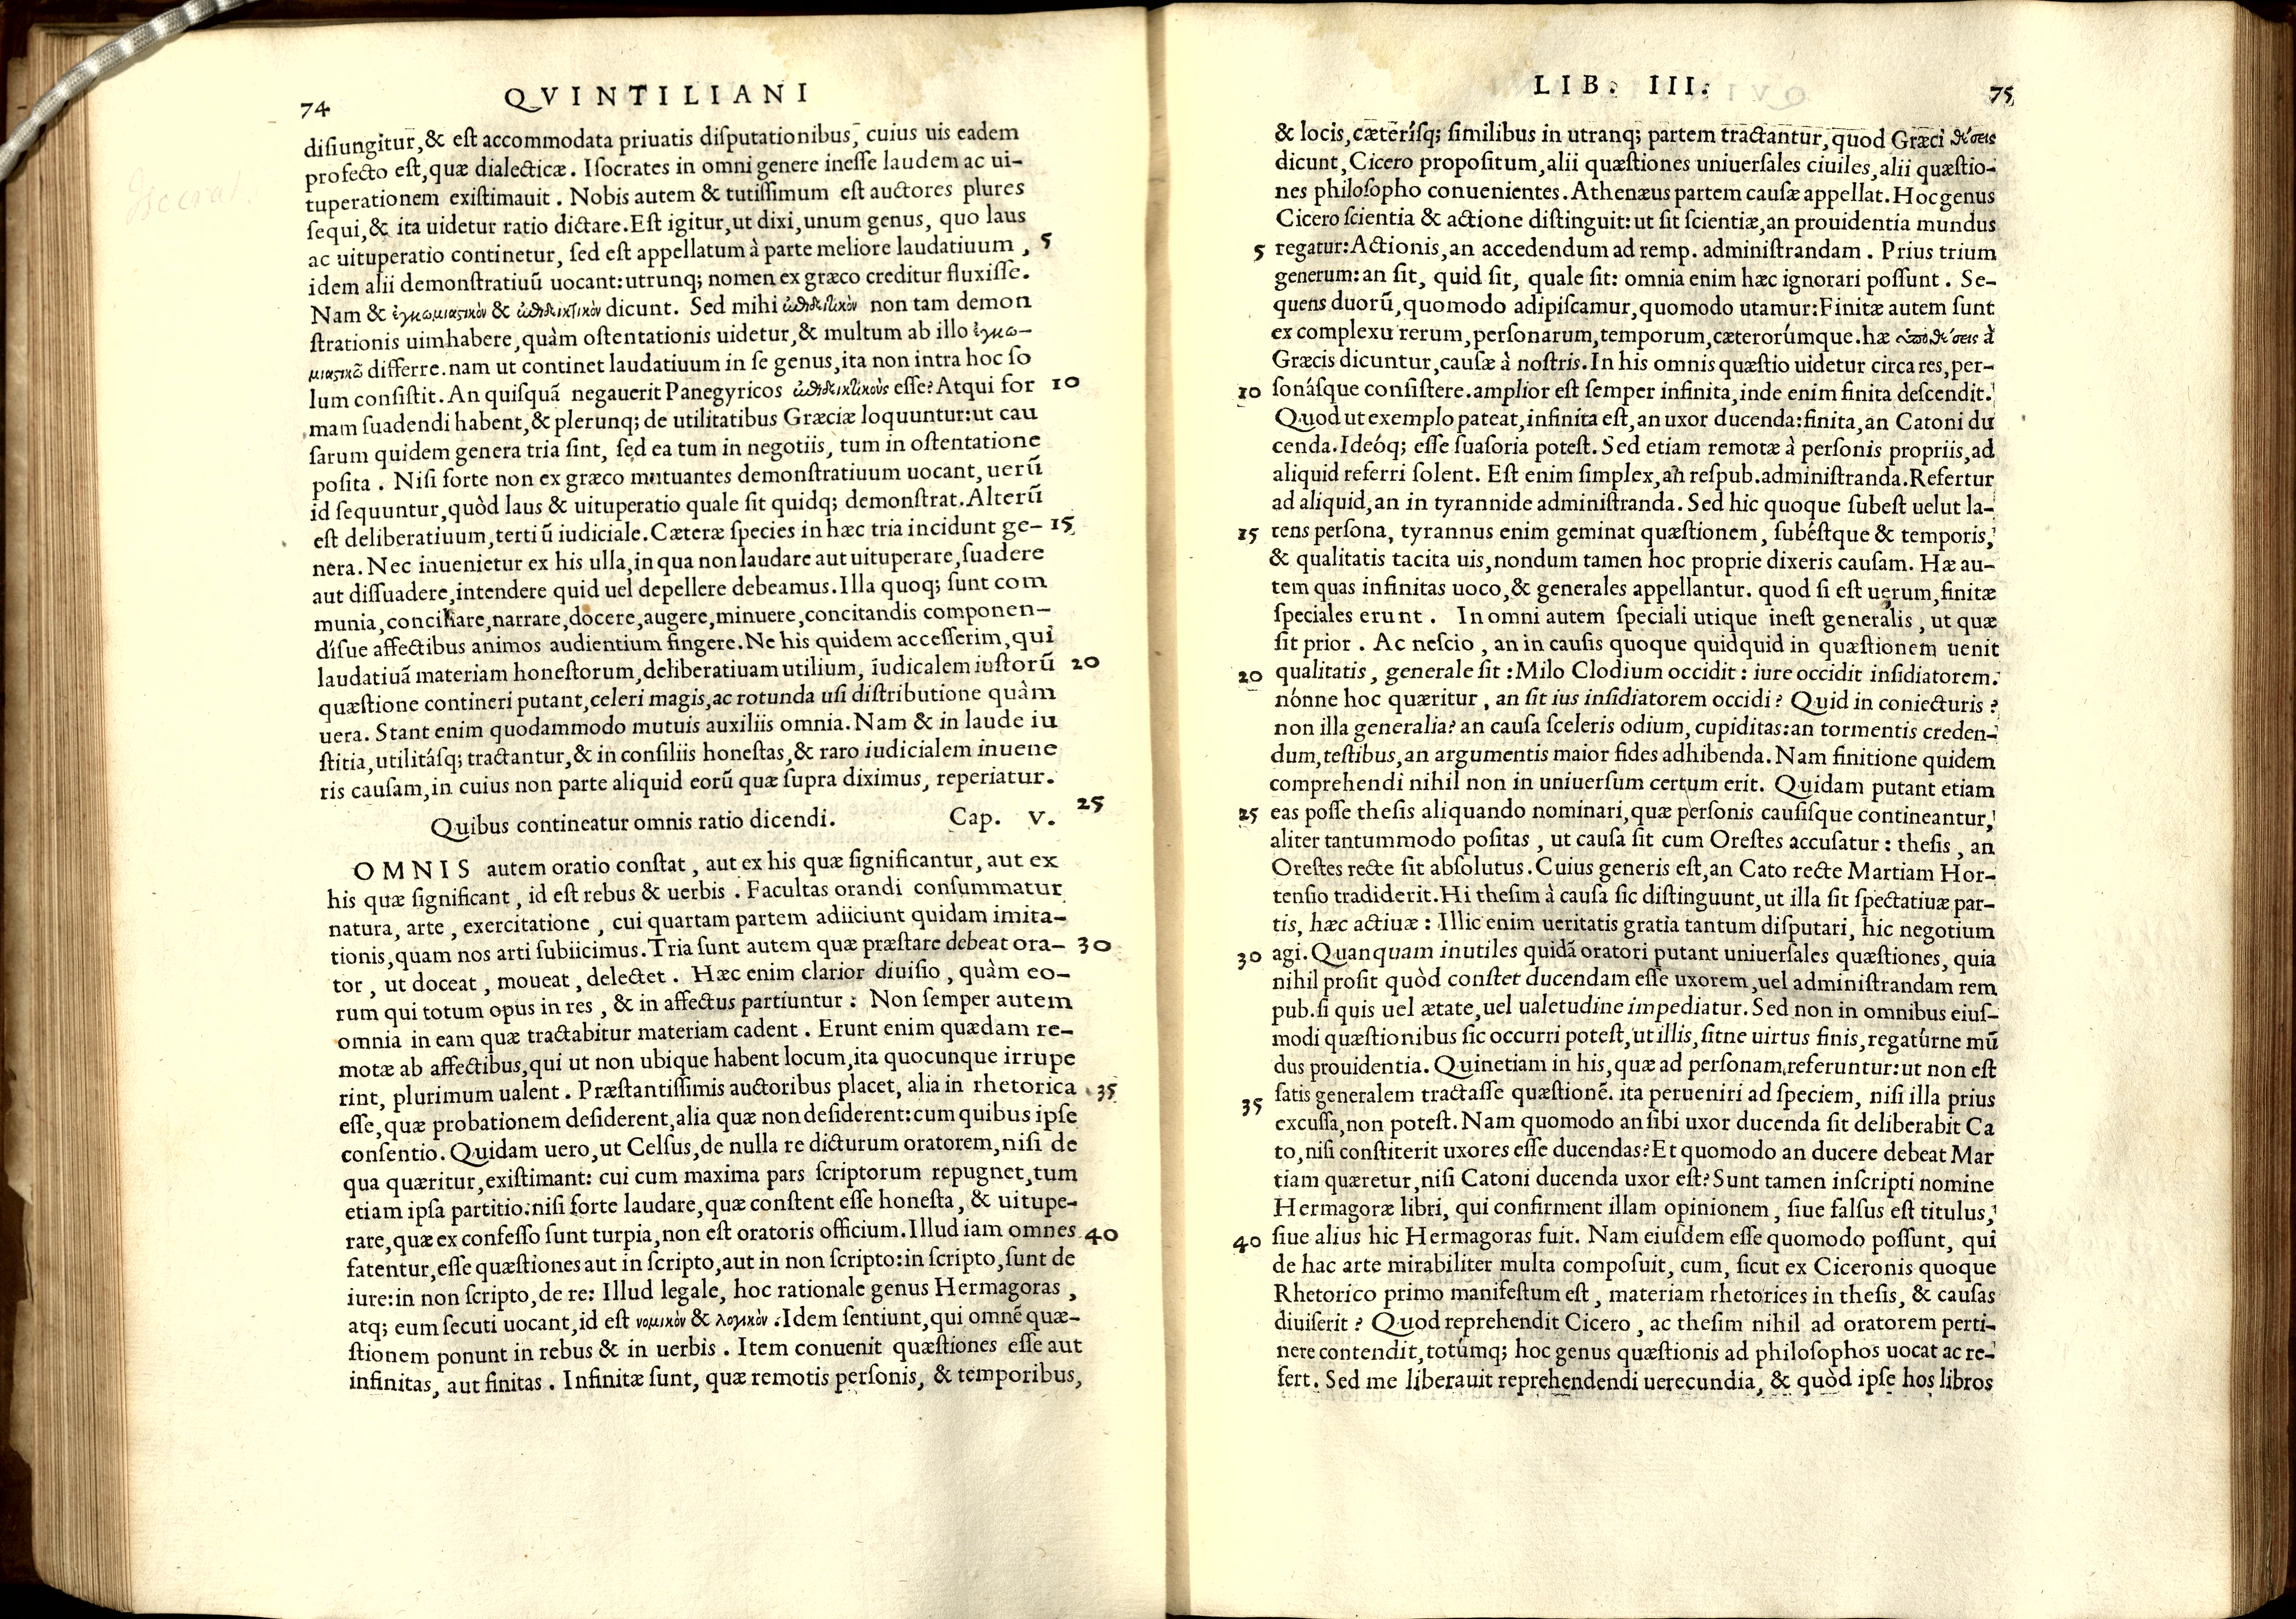 74 QVINTILIANI
disiungitur, & est accommodata priuatis disputationibus, cuius uis eadem
profecto est, quæ dialecticæ. Isocrates in omni genere inesse laudem ac ui-
tuperationem existimauit. Nobis autem & tutissimum est auctores plures
sequi, & ita uidetur ratio dictare. Est igitur, ut dixi, unum genus, quo laus
ac uituperatio continetur, sed est appellatum à parte meliore laudatiuum, 5
idem alii demonstratiuũ uocant: utrunq; nomen ex græco creditur fluxisse.
Nam & ἐγκωμιαστικὸν & ἐπιδεικτικὸν dicunt. Sed mihi ἐπιδεικτικὸν non tam demon
strationis uim habere, quàm ostentationis uidetur, & multum ab illo ἐγκω-
μιαστικῶ differre. nam ut continet laudatiuum in se genus, ita non intra hoc so
lum consistit. An quisquã negauerit Panegyricos ἐπιδεικτικοὺς esse? Atqui for 10
mam suadendi habent, & plerunq; de utilitatibus Græciæ loquuntur: ut cau
sarum quidem genera tria sint, sed ea tum in negotiis, tum in ostentatione
posita. Nisi forte non ex græco mutuantes demonstratiuum uocant, uerũ
id sequuntur, quòd laus & uituperatio quale sit quidq; demonstrat. Alterũ
est deliberatiuum, tertiũ iudiciale. Cæteræ species in hæc tria incidunt ge- 15
nera. Nec inuenietur ex his ulla, in qua non laudare aut uituperare, suadere
aut dissuadere, intendere quid uel depellere debeamus. Illa quoq; sunt com
munia, conciliare, narrare, docere, augere, minuere, concitandis componen-
dísue affectibus animos audientium fingere. Ne his quidem accesserim, qui
laudatiuã materiam honestorum, deliberatiuam utilium, iudicalem iustorũ 20
quæstione contineri putant, celeri magis, ac rotunda usi distributione quàm
uera. Stant enim quodammodo mutuis auxiliis omnia. Nam & in laude iu
stitia, utilitásq; tractantur, & in consiliis honestas, & raro iudicialem inuene
ris causam, in cuius non parte aliquid eorũ quæ supra diximus, reperiatur.
25
Quibus contineatur omnis ratio dicendi. Cap. V.
OMNIS autem oratio constat, aut ex his quæ significantur, aut ex
his quæ significant, id est rebus & uerbis. Facultas orandi consummatur
natura, arte, exercitatione, cui quartam partem adiiciunt quidam imita-
tionis, quam nos arti subiicimus. Tria sunt autem quæ præstare debeat ora- 30
tor, ut doceat, moueat, delectet. Hæc enim clarior diuisio, quàm eo-
rum qui totum opus in res, & in affectus partiuntur: Non semper autem
omnia in eam quæ tractabitur materiam cadent. Erunt enim quædam re-
motæ ab affectibus, qui ut non ubique habent locum, ita quocunque irrupe
rint, plurimum ualent. Præstantissimis auctoribus placet, alia in rhetorica 35
esse, quæ probationem desiderent, alia quæ non desiderent: cum quibus ipse
consentio. Quidam uero, ut Celsus, de nulla re dicturum oratorem, nisi de
qua quæritur, existimant: cui cum maxima pars scriptorum repugnet, tum
etiam ipsa partitio: nisi forte laudare, quæ constent esse honesta, & uitupe-
rare, quæ ex confesso sunt turpia, non est oratoris officium. Illud iam omnes 40
fatentur, esse quæstiones aut in scripto, aut in non scripto: in scripto, sunt de
iure: in non scripto, de re: Illud legale, hoc rationale genus Hermagoras,
atq; eum secuti uocant, id est νομικὸν & λογικὸν. Idem sentiunt, qui omnẽ quæ-
stionem ponunt in rebus & in uerbis. Item conuenit quæstiones esse aut
infinitas, aut finitas. Infinitæ sunt, quæ remotis personis, & temporibus,
LIB. III. 75
& locis, cæterísq; similibus in utranq; partem tractantur, quod Græci θέσεις
dicunt, Cicero propositum, alii quæstiones uniuersales ciuiles, alii quæstio-
nes philosopho conuenientes. Athenæus partem causæ appellat. Hoc genus
Cicero scientia & actione distinguit: ut sit scientiæ, an prouidentia mundus
5 regatur: Actionis, an accedendum ad remp. administrandam. Prius trium
generum: an sit, quid sit, quale sit: omnia enim hæc ignorari possunt. Se-
quens duorũ, quomodo adipiscamur, quomodo utamur: Finitæ autem sunt
ex complexu rerum, personarum, temporum, cæterorúmque. hæ ὑποθέσεις à
Græcis dicuntur, causæ à nostris. In his omnis quæstio uidetur circa res, per-
10 sonásque consistere. amplior est semper infinita, inde enim finita descendit.
Quod ut exemplo pateat, infinita est, an uxor ducenda: finita, an Catoni du
cenda. Ideóq; esse suasoria potest. Sed etiam remotæ à personis propriis, ad
aliquid referri solent. Est enim simplex, an respub. administranda. Refertur
ad aliquid, an in tyrannide administranda. Sed hic quoque subest uelut la-
15 tens persona, tyrannus enim geminat quæstionem, subéstque & temporis,
& qualitatis tacita uis, nondum tamen hoc proprie dixeris causam. Hæ au-
tem quas infinitas uoco, & generales appellantur. quod si est uerum, finitæ
speciales erunt. In omni autem speciali utique inest generalis, ut quæ
sit prior. Ac nescio, an in causis quoque quidquid in quæstionem uenit
20 qualitatis, generale sit: Milo Clodium occidit: iure occidit insidiatorem.
nónne hoc quæritur, an sit ius insidiatorem occidi? Quid in coniecturis?
non illa generalia? an causa sceleris odium, cupiditas: an tormentis creden-
dum, testibus, an argumentis maior fides adhibenda. Nam finitione quidem
comprehendi nihil non in uniuersum certum erit. Quidam putant etiam
25 eas posse thesis aliquando nominari, quæ personis causisque contineantur,
aliter tantummodo positas, ut causa sit cum Orestes accusatur: thesis, an
Orestes recte sit absolutus. Cuius generis est, an Cato recte Martiam Hor-
tensio tradiderit. Hi thesim à causa sic distinguunt, ut illa sit spectatiuæ par-
tis, hæc actiuæ: Illic enim ueritatis gratia tantum disputari, hic negotium
30 agi. Quanquam inutiles quidã oratori putant uniuersales quæstiones, quia
nihil prosit quòd constet ducendam esse uxorem, uel administrandam rem
pub. si quis uel ætate, uel ualetudine impediatur. Sed non in omnibus eius-
modi quæstionibus sic occurri potest, ut illis, sitne uirtus finis, regatúrne mũ
dus prouidentia. Quinetiam in his, quæ ad personam referuntur: ut non est
35 satis generalem tractasse quæstionẽ. ita perueniri ad speciem, nisi illa prius
excussa, non potest. Nam quomodo an sibi uxor ducenda sit deliberabit Ca
to, nisi constiterit uxores esse ducendas? Et quomodo an ducere debeat Mar
tiam quæretur, nisi Catoni ducenda uxor est? Sunt tamen inscripti nomine
Hermagoræ libri, qui confirment illam opinionem, siue falsus est titulus,
40 siue alius hic Hermagoras fuit. Nam eiusdem esse quomodo possunt, qui
de hac arte mirabiliter multa composuit, cum, sicut ex Ciceronis quoque
Rhetorico primo manifestum est, materiam rhetorices in thesis, & causas
diuiserit? Quod reprehendit Cicero, ac thesim nihil ad oratorem perti-
nere contendit, totúmq; hoc genus quæstionis ad philosophos uocat ac re-
fert. Sed me liberauit reprehendendi uerecundia, & quòd ipse hos libros